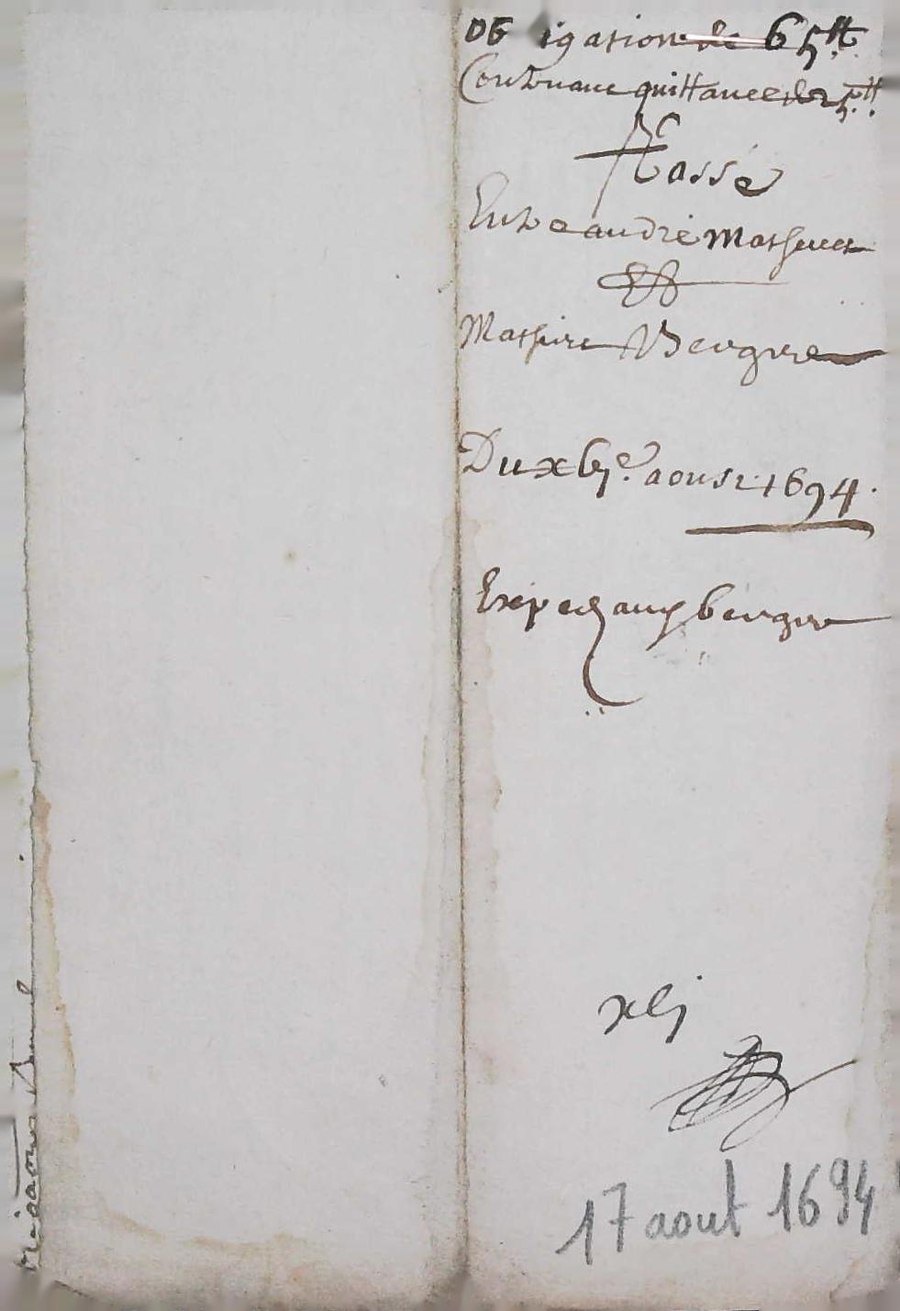 Ob igation de 65tt
Contenant quittance de 25tt.
Passé
Entre andré Mathieu
Et
Mathieu Bergire
Du xbije. aoust 1694.
Exped au bergire
xlj
17 aout 1694